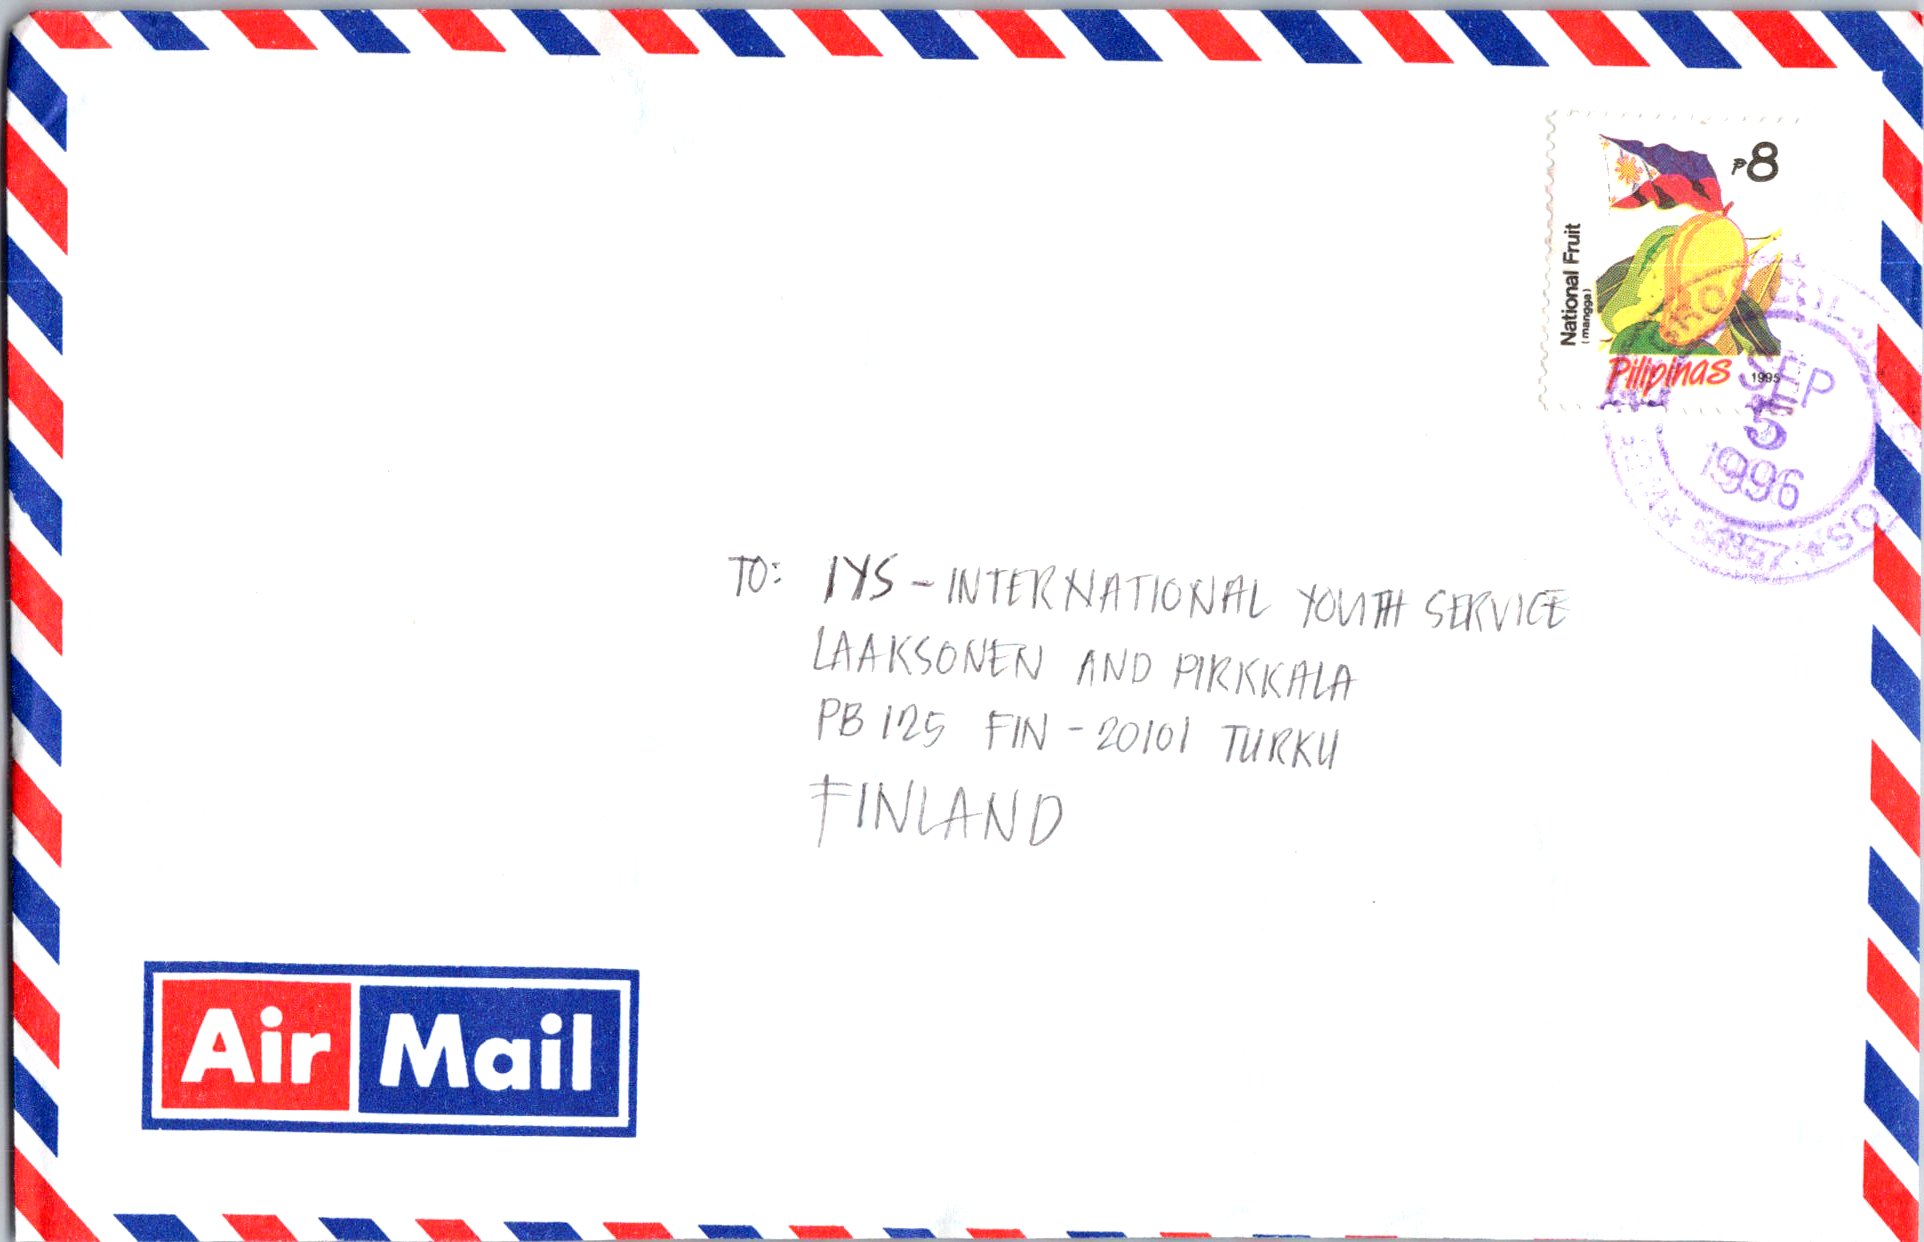 ₱8
National Fruit
(mangga)
Pilipinas 1995
SEP
5
1996
TO: IYS - INTERNATIONAL YOUTH SERVICE
LAAKSONEN AND PIRKKALA
PB 125 FIN - 20101 TURKU
FINLAND
Air Mail